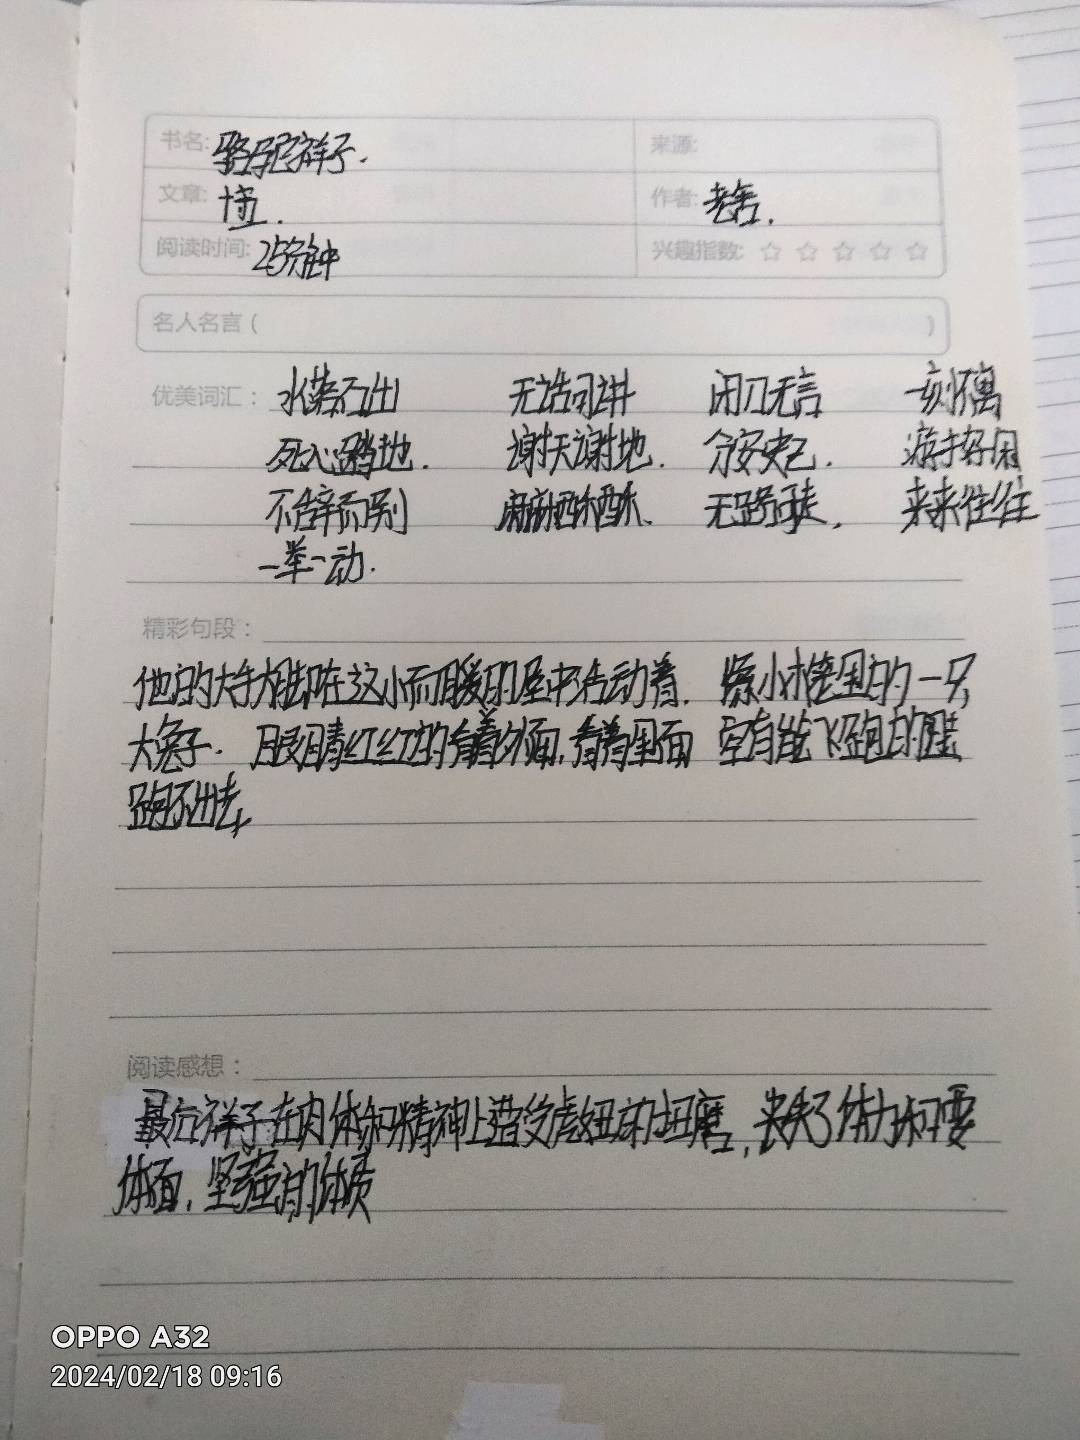 书名: 骆驼祥子. 来源:
文章: 十五. 作者: 老舍.
阅读时间: 25分钟 兴趣指数: ☆ ☆ ☆ ☆ ☆
名人名言 ( )
优美词汇: 水落石出 无话可讲 闭口无言 一刻不离
死心踏地. 谢天谢地. 分安史己. 游手好闲
不辞而别 麻麻酥酥. 无路可走. 来来往往
一举一动.
精彩句段:
他的大手大脚在这小而暖的屋中活动着. 像小木笼里的一只
大兔子. 眼睛红红的看着外面, 看着里面 空有能飞跑的腿
跑不出去,
阅读感想:
最后祥子在肉体和精神上遭受虎妞的折磨, 丧失了体力和
体面, 坚强的体质
OPPO A32
2024/02/18 09:16